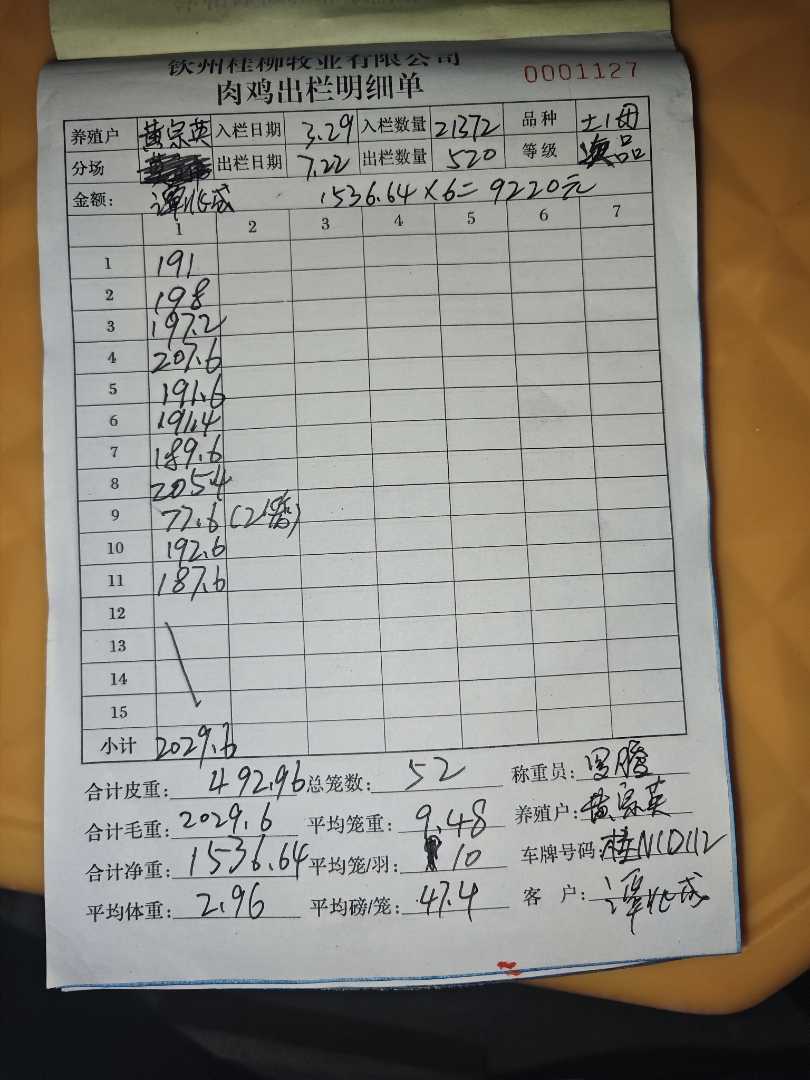 钦州桂柳牧业有限公司
肉鸡出栏明细单 0001127
养殖户 黄宗英 入栏日期 3.29 入栏数量 21372 品种 土1母
分场 出栏日期 7.22 出栏数量 520 等级 品
金额: 谭 1536.64×6=9220元
1 2 3 4 5 6 7
1 191
2 198
3 197.2
4 207.6
5 191.6
6 191.4
7 189.6
8 205.4
9 77.6 (2笼)
10 192.6
11 187.6
12
13
14
15
小计 2029.6
合计皮重: 492.96 总笼数: 52 称重员: 罗腾
合计毛重: 2029.6 平均笼重: 9.48 养殖户: 黄宗英
合计净重: 1536.64 平均笼/羽: 10 车牌号码: 桂N1D112
平均体重: 2.96 平均磅/笼: 47.4 客户: 谭